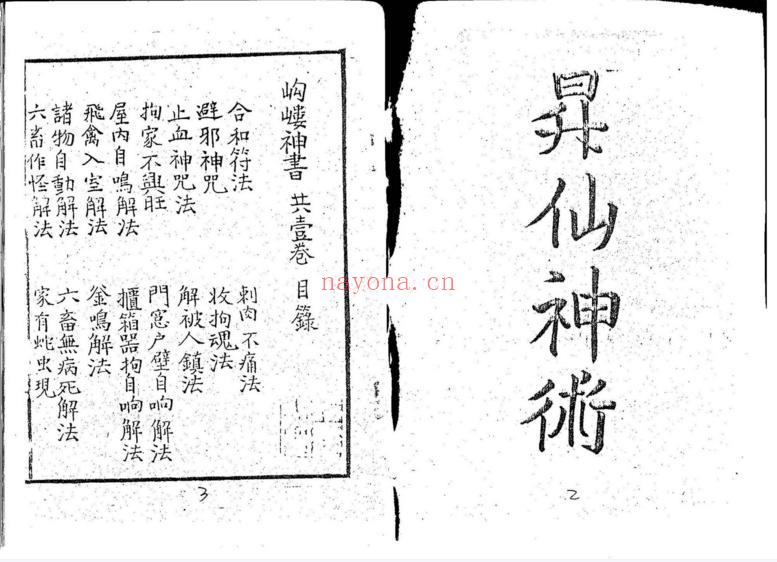 昇仙神術
2
岣嶁神書 共壹卷 目錄
合和符法 刺肉不痛法
避邪神咒 收拘魂法
止血神咒法 解被人鎮法
拘家不興旺 門窓户壁自响解法
屋内自鳴解法 櫃箱器拘自响解法
飛禽入室解法 釜鳴解法
諸物自動解法 六畜無病死解法
六畜作怪解法 家有蛇虫現
3
nayona.cn